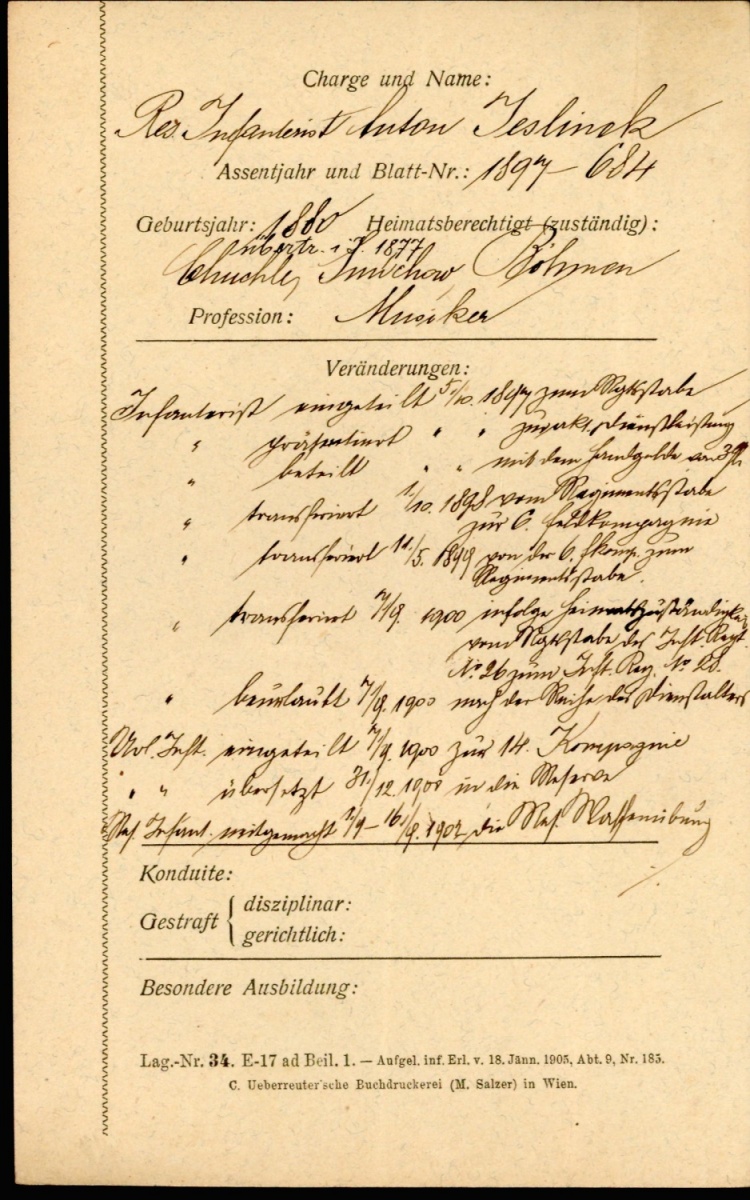 Charge und Name:
Res. Infanterist Anton Jeslinek
Assentjahr und Blatt-Nr.: 1897 – 684
Geburtsjahr: 1880 Heimatsberechtigt (zuständig):
übertr. i. J. 1877
Chuchle, Smichow, Böhmen
Profession: Musiker
Veränderungen:
Infanterist eingeteilt 5/10. 1897 zum Rgtsstabe
" präsentiert " " zur akt. Dienstleistung
" beteilt " " mit dem Handgelde von 3 fl
" transferiert 1/10. 1898 vom Regimentsstabe
zur 6. Feldkompagnie
" transferiert 11/5. 1899 von der 6. Fkomp. zum
Regimentsstabe.
" transferiert 7/9. 1900 infolge Heimatszuständigkeit
vom Rgtsstabe des Inft. Regt.
No 26 zum Inft. Reg. No 28.
" beurlaubt 7/9. 1900 nach der Reihe des Dienstalters
Url. Inft. eingeteilt 7/9. 1900 zur 14. Kompagnie
" " übersetzt 31/12. 1900 in die Reserve
Res. Infant. mitgemacht – 16/9. 1902 die Res. Waffenübung
Konduite:
Gestraft { disziplinar:
gerichtlich:
Besondere Ausbildung:
Lag.-Nr. 34. E-17 ad Beil. 1. — Aufgel. inf. Erl. v. 18. Jänn. 1905, Abt. 9, Nr. 185.
C. Ueberreuter'sche Buchdruckerei (M. Salzer) in Wien.